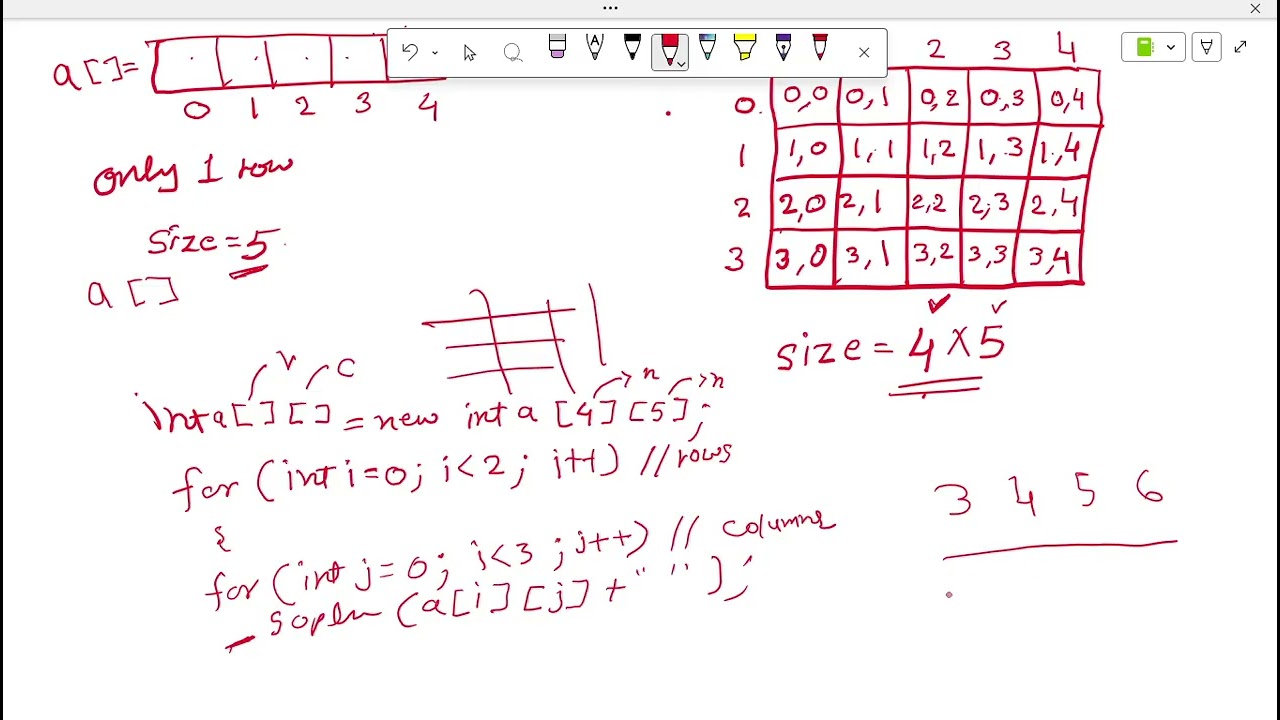 a[]=
0 1 2 3 4
only 1 row
size=5
a[]
2 3 4
0 0,0 0,1 0,2 0,3 0,4
1 1,0 1,1 1,2 1,3 1,4
2 2,0 2,1 2,2 2,3 2,4
3 3,0 3,1 3,2 3,3 3,4
size=4×5
r c
int a[][]=new int a[4][5];
for (int i=0; i<2; i++) //rows
{
for (int j=0; j<3; j++) // columns
Sopln (a[i][j]+" ");
3 4 5 6